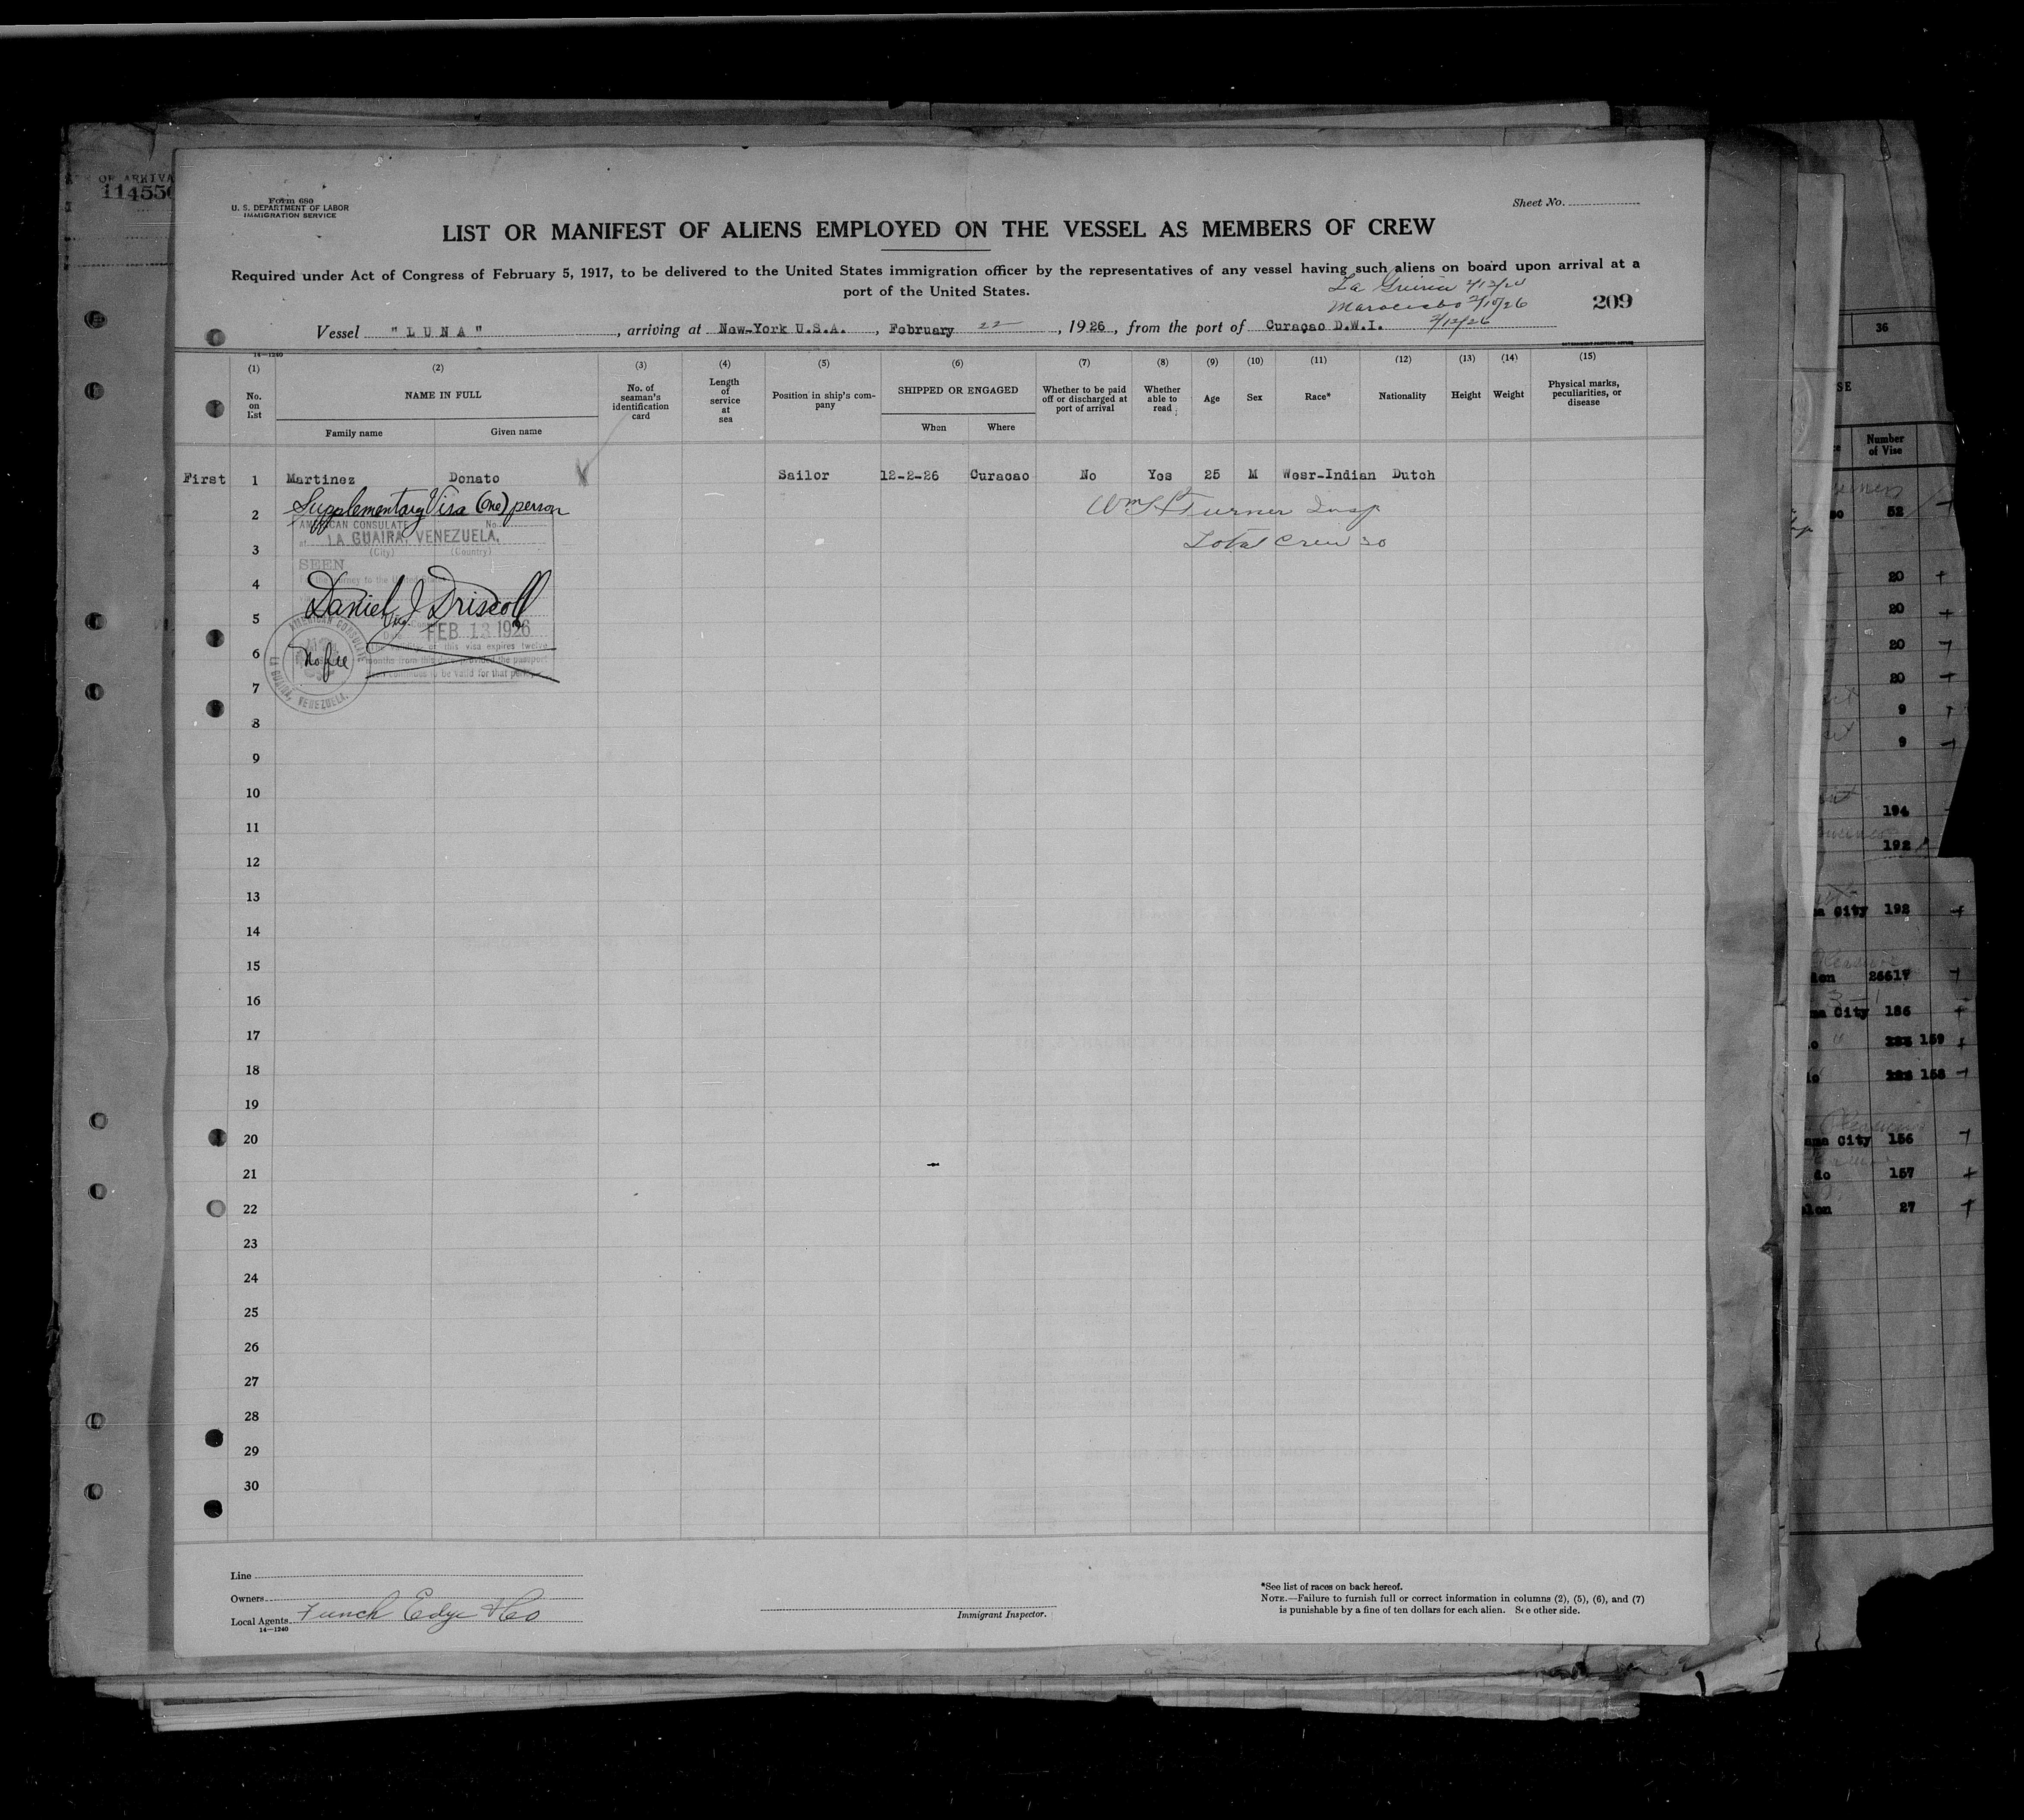 OF ARRIVA
11455
Form 680
U. S. DEPARTMENT OF LABOR
IMMIGRATION SERVICE
Sheet No.
LIST OR MANIFEST OF ALIENS EMPLOYED ON THE VESSEL AS MEMBERS OF CREW
Required under Act of Congress of February 5, 1917, to be delivered to the United States immigration officer by the representatives of any vessel having such aliens on board upon arrival at a
port of the United States.
La Guiria 2/13/26
209
Vessel "LUNA", arriving at New-York U.S.A., February 22, 1926, from the port of Curaçao D.W.I. 2/12/26
14—1240
(1) (2) (3) (4) (5) (6) (7) (8) (9) (10) (11) (12) (13) (14) (15)
No. on list
NAME IN FULL
Family name Given name
No. of seaman's identification card
Length of service at sea
Position in ship's company
SHIPPED OR ENGAGED
When Where
Whether to be paid off or discharged at port of arrival
Whether able to read
Age
Sex
Race*
Nationality
Height
Weight
Physical marks, peculiarities, or disease
First 1 Martinez Donato Sailor 12-2-26 Curacao No Yes 25 M Wesr-Indian Dutch
Supplementary Visa (one) person
2 Wm St Turner Insp
AMERICAN CONSULATE No.
at LA GUAIRA, VENEZUELA.
(City) (Country)
3 Total Crew 30
SEEN
4
Daniel J Driscoll
5
FEB 13 1926
6
No fee
AMERICAN CONSULATE
LA GUAIRA, VENEZUELA.
7
8
9
10
11
12
13
14
15
16
17
18
19
20
21
22
23
24
25
26
27
28
29
30
Line
Owners
Local Agents Funch Edye & Co
14—1240
Immigrant Inspector.
*See list of races on back hereof.
NOTE.—Failure to furnish full or correct information in columns (2), (5), (6), and (7)
is punishable by a fine of ten dollars for each alien. See other side.
36
Number
of Vise
52
20
20
20
20
9
9
194
192
City 192
26617
City 186
159
158
City 156
do 157
27